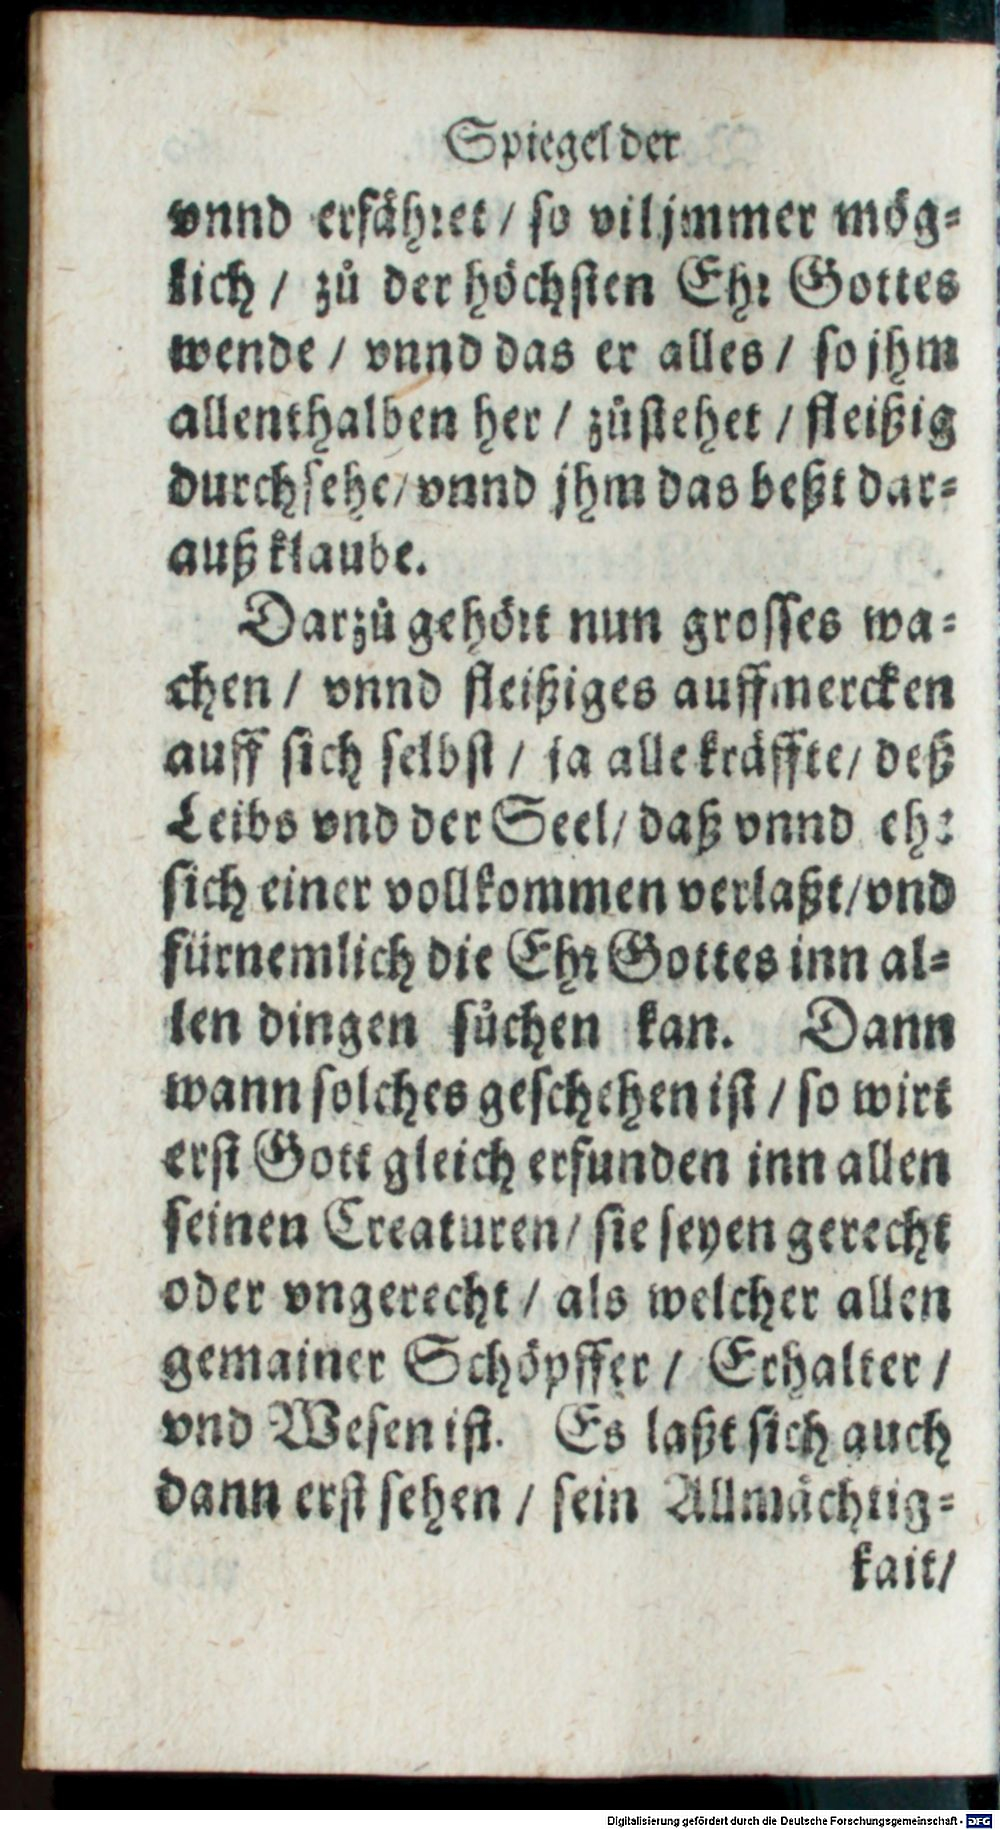 Spiegel der
vnnd erfähret / so vil jmmer mög⸗
lich / zů der höchsten Ehr Gottes
wende / vnnd das er alles / so jhm
allenthalben her / zůstehet / fleißig
durchsehe / vnnd jhm das beßt dar⸗
auß klaube.
Darzů gehört nun grosses wa⸗
chen / vnnd fleißiges auffmercken
auff sich selbst / ja alle kräffte / deß
Leibs vnd der Seel / daß vnnd ehr
sich einer vollkommen verlaßt / vnd
fürnemlich die Ehr Gottes inn al⸗
len dingen sůchen kan. Dann
wann solches geschehen ist / so wirt
erst Gott gleich erfunden inn allen
seinen Creaturen / sie seyen gerecht
oder vngerecht / als welcher allen
gemainer Schöpffer / Erhalter /
vnd Wesen ist. Es laßt sich auch
dann erst sehen / sein Allmächtig⸗
kait /
Digitalisierung gefördert durch die Deutsche Forschungsgemeinschaft - DFG